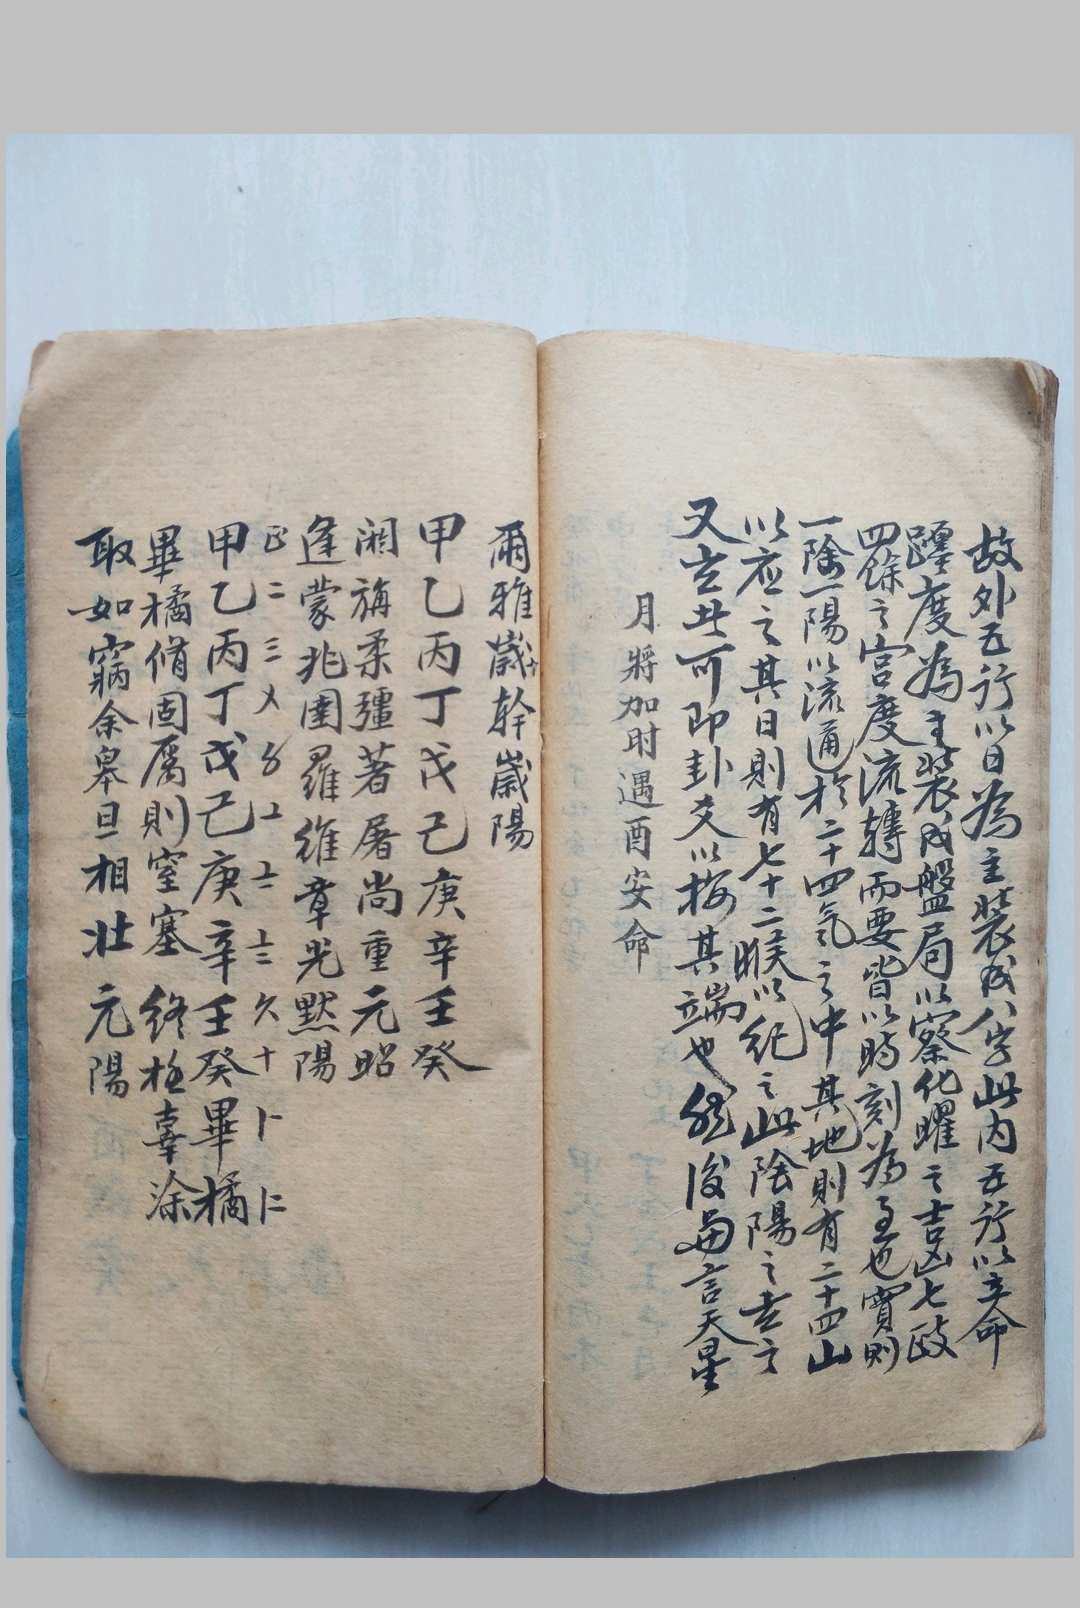 故外五行以日為主裝成八字此内五行以立命
躔度為主裝成盤局以察化曜之吉凶七政
四餘之宫度流轉而要皆以時刻為至也實則
一陰一陽以流通於二十四氣之中其地則有二十四山
以应之其日則有七十二候以紀之此陰陽之玄之
又玄此可即卦爻以按其端也然後当言天星
月將加时遇酉安命
爾雅歲十幹歲陽
甲乙丙丁戊己庚辛壬癸
閼旃柔彊著屠尚重元昭
逢蒙兆圉雍維章光黙陽
正二三〤〥〦〧〨〩十卜仁
甲乙丙丁戊己庚辛壬癸畢橘
畢橘脩固厲則窒塞終極辜涂
陬如寎余皋旦相壯元陽